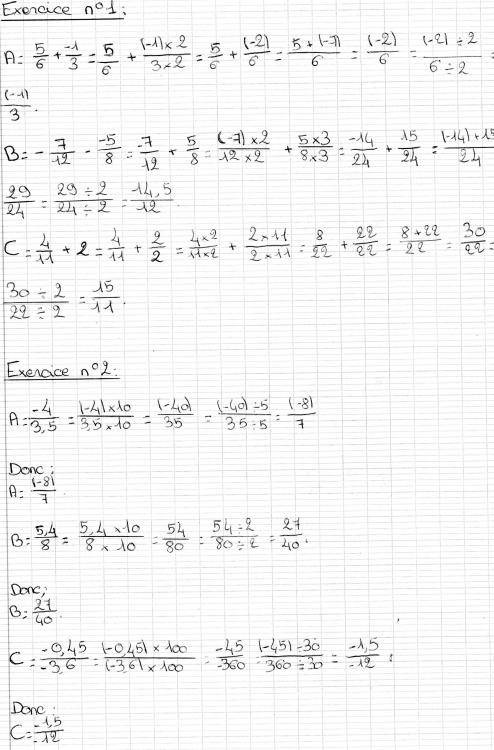 Exercice n°1:
A= 5/6 + -1/3 = 5/6 + (-1)×2/3×2 = 5/6 + (-2)/6 = 5+(-7)/6 = (-2)/6 = (-2)÷2/6÷2 =
(-1)/3.
B= - 7/12 - -5/8 = -7/12 + 5/8 = (-7)×2/12×2 + 5×3/8×3 = -14/24 + 15/24 = (-14)+15/24
29/24 = 29÷2/24÷2 = 14,5/12.
C= 4/11 + 2 = 4/11 + 2/2 = 4×2/11×2 + 2×11/2×11 = 8/22 + 22/22 = 8+22/22 = 30/22 =
30÷2/22÷2 = 15/11.
Exercice n°2:
A= -4/3,5 = (-4)×10/3,5×10 = (-40)/35 = (-40)÷5/35÷5 = (-8)/7
Donc;
A= (-8)/7.
B= 5,4/8 = 5,4×10/8×10 = 54/80 = 54÷2/80÷2 = 27/40.
Donc;
B= 27/40.
C= -0,45/-3,6 = (-0,45)×100/(-3,6)×100 = -45/-360 (-45)÷30/360÷30 = -1,5/-12.
Donc;
C= -1,5/12